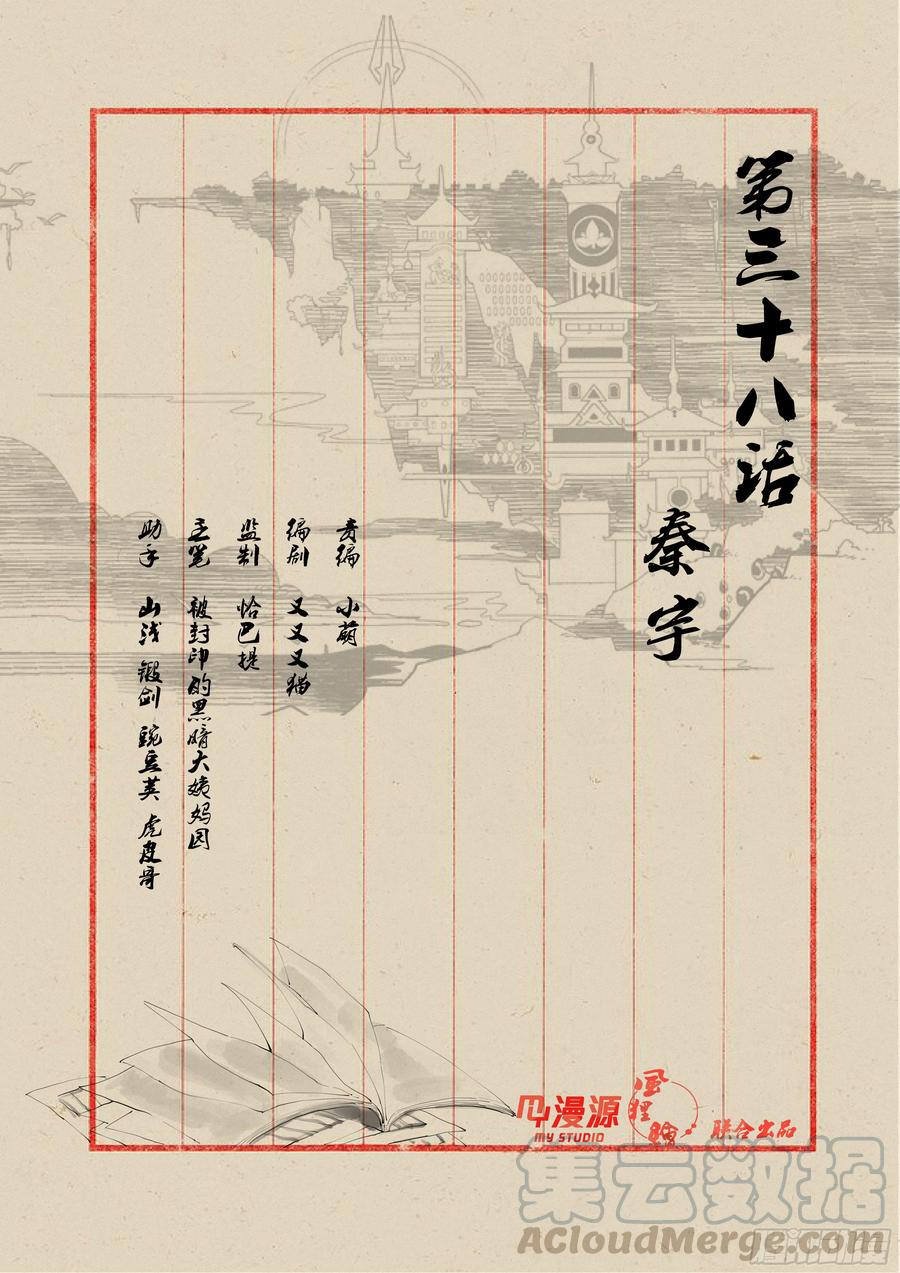 第三十八话
秦宇
责编 小萌
编剧 又又又猫
监制 恰巴提
主笔 被封印的黑暗大姨妈囚
助手 山浅 锻剑 豌豆荚 虎皮哥
漫源
MY STUDIO
联合出品
集云数据
ACloudMerge.com